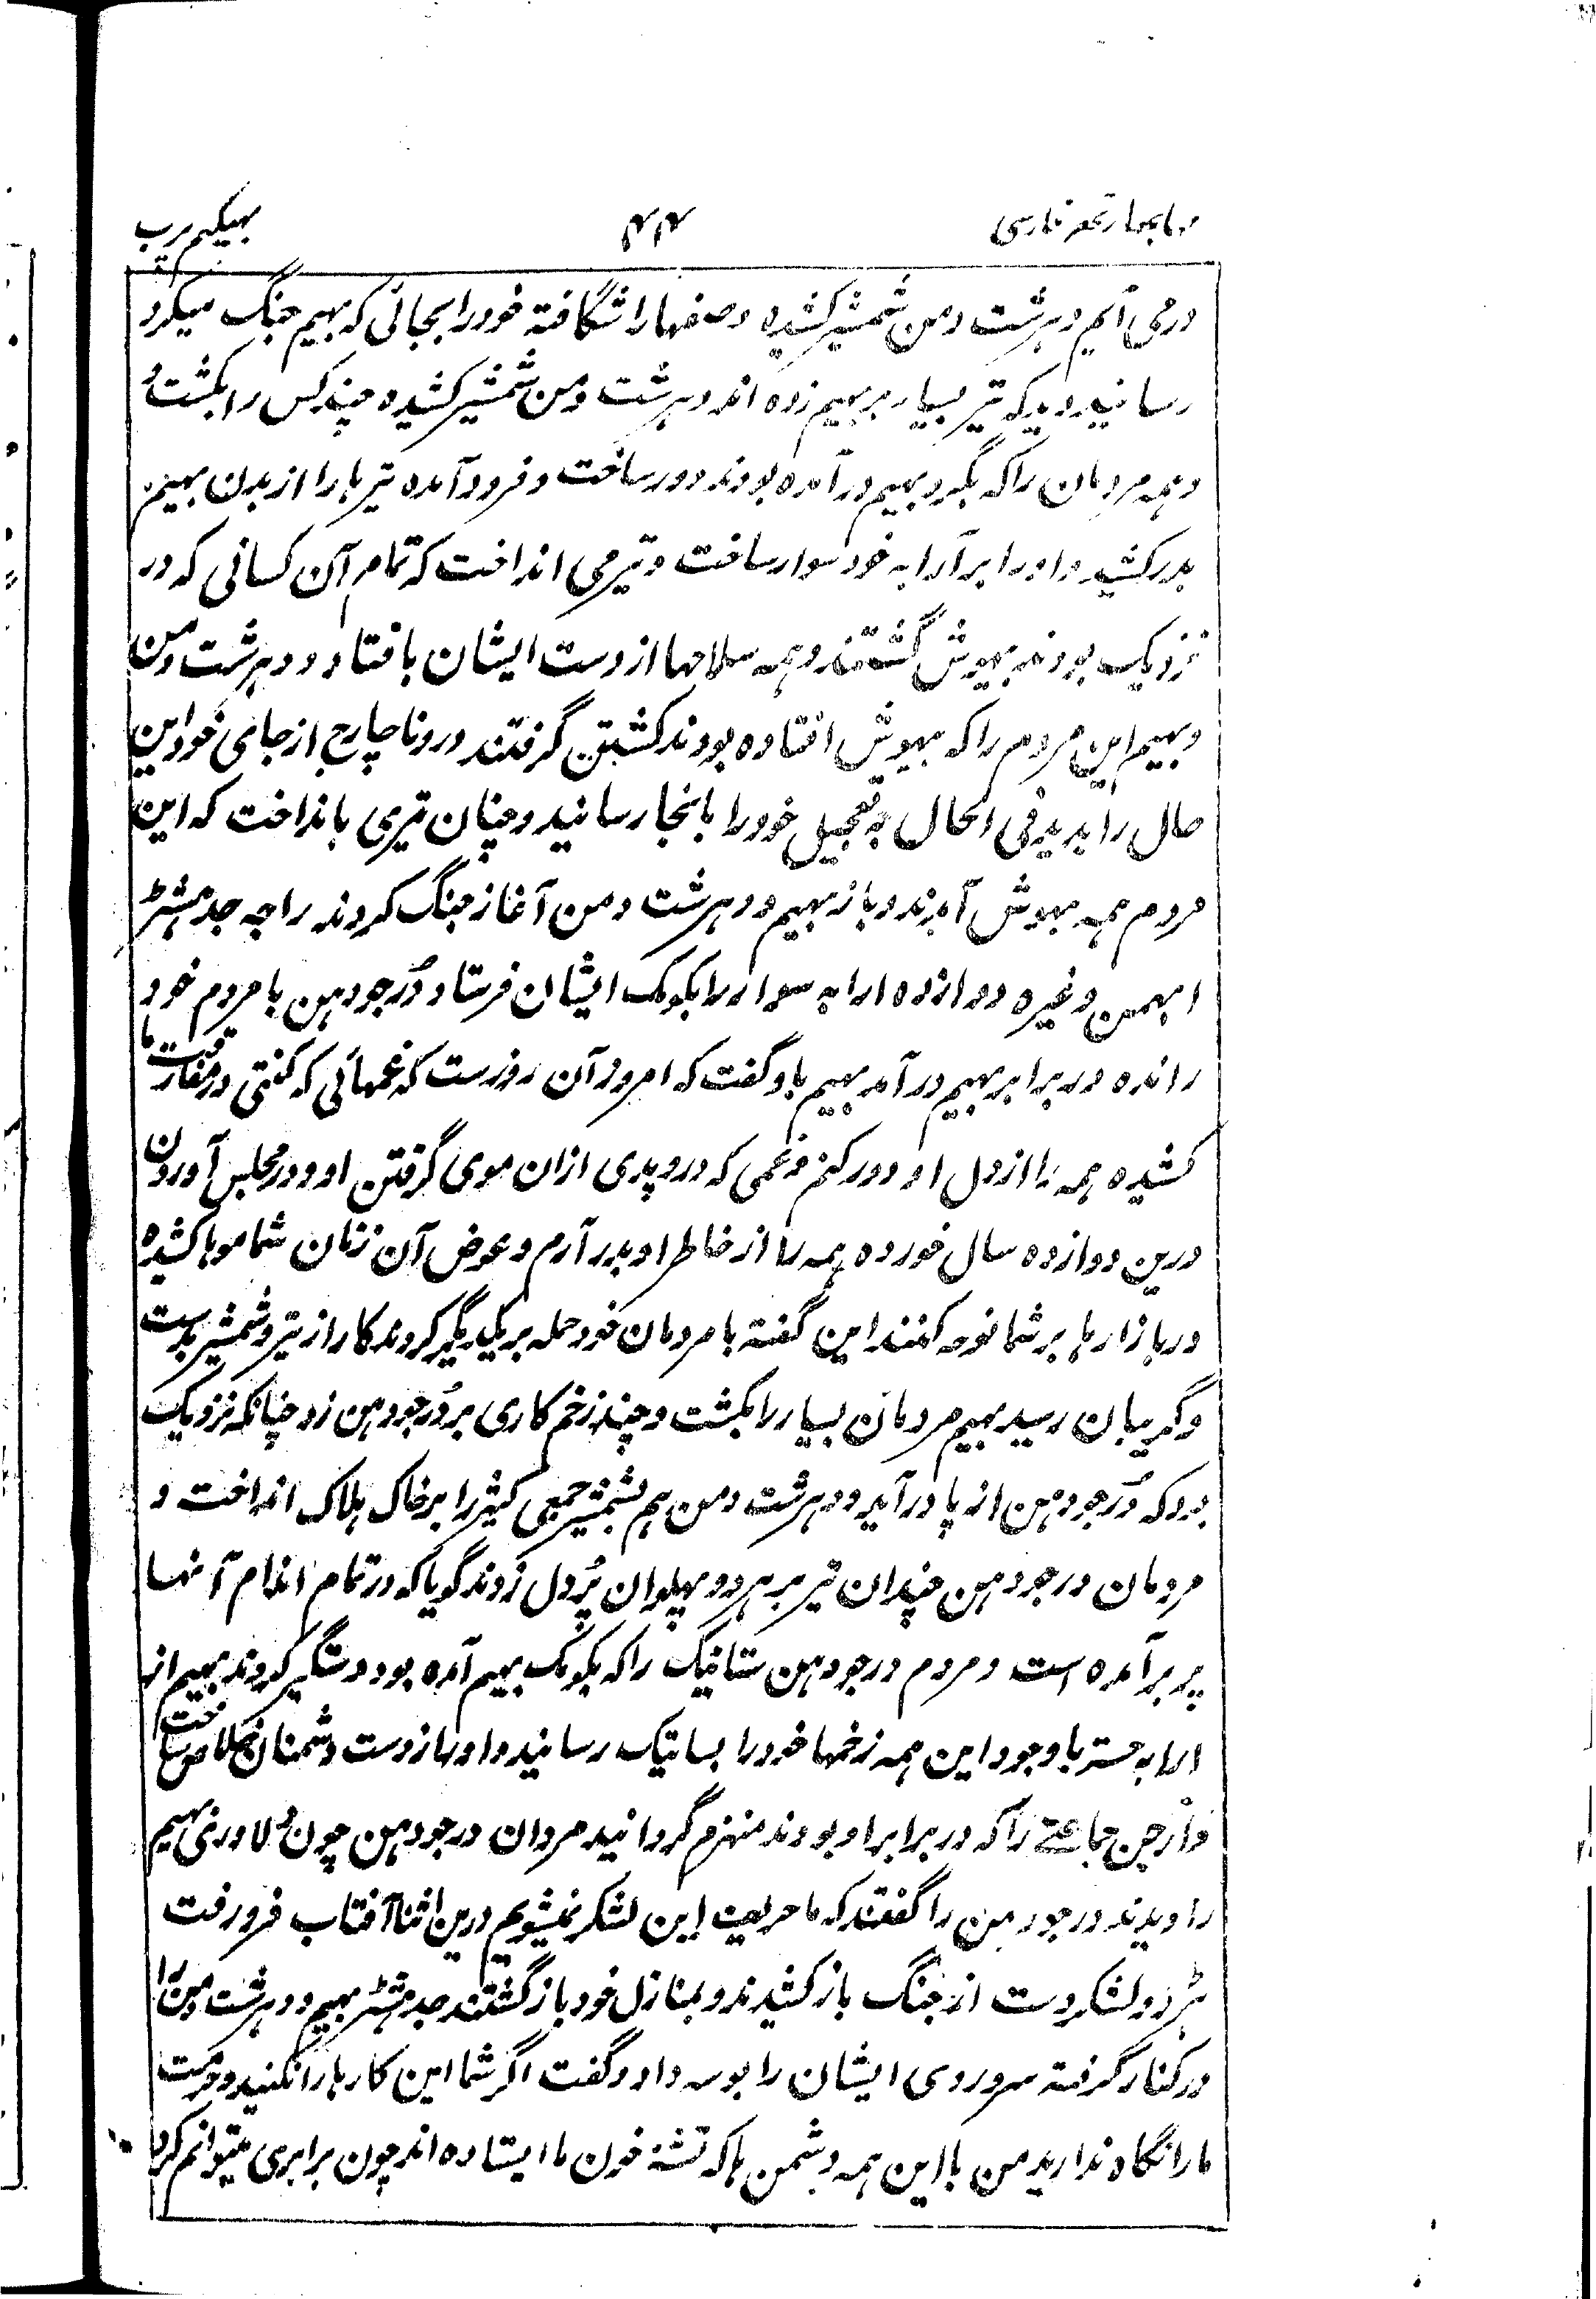 مهابهارتهه فارسی ۴۴ بهیکم پرب
درمی آیم و دهرشت دمن شمشیر کشیده وصفها را شگافته خود را بجائی که بهیم جنگ میکرد
رسانید دید که تیر بسیار بر بهیم زده اند دهرشت دمن شمشیر کشیده چند کس را بکشت و
و همه مردمان را که بگرد بهیم درآمده بودند دور ساخت و فرود آمده تیرها را از بدن بهیم
بدر کشید و او را بر ارابه خود سوار ساخت و تیر می انداخت که تمام آن کسانی که در
نزدیک بودند بیهوش گشتند و همه سلاحها از دست ایشان بافتاد و دهرشت دمن
و بهیم این مردم را که بیهوش افتاده بودند کشتن گرفتند درونا چارج از جای خود این
حال را بدید فی الحال به تعجیل خود را بانجا رسانید و چنان تیری بانداخت که این
مردم همه بهوش آمدند و باز بهیم و دهرشت دمن آغاز جنگ کردند راجه جدهشتر
ابهمن وغیره دوازده ارابه سوار را بکومک ایشان فرستاد دُرجودهن با مردم خود
رانده در برابر بهیم درآمد بهیم باو گفت که امروز آن روزست که غمهائی که کنتی در مفارقت ما
کشیده همه را از دل او دور کنم و غمی که دروپدی ازان موی گرفتن او و در مجلس آوردن
درین دوازده سال خورده همه را از خاطر او بدر آرم و عوض آن زنان شما موها کشیده
در بازارها بر شما نوحه کنند این گفته با مردمان خود حمله بر یکدیگر کردند کار از تیر و شمشیر بدست
و گریبان رسید بهیم مردمان بسیار را بکشت و چند زخم کاری بر دُرجودهن زد چنانکه نزدیک
بود که دُرجودهن از پا درآید و دهرشت دمن هم بشمشیر جمعی کثیر را بر خاک هلاک انداخت و
مردمان درجودهن چندان تیر بر هر دو پهلوان پُردل زدند گویا که در تمام اندام آنها
پر برآمده است و مردم درجودهن ستانیک را که بکومک بهیم آمده بود دستگیر کردند بهیم از
ارابه جسته باوجود این همه زخمها خود را بساتیک رسانید و او را از دست دشمنان خلاص ساخت
و ارجن جماعتے را که در برابر او بودند منهزم گردانید مردان درجودهن چون دلاوری بهیم
را دیدند درجودهن را گفتند که ما حریف این لشکر نمیشویم درین اثنا آفتاب فرو رفت
هر دو لشکر دست از جنگ باز کشیدند و بمنازل خود باز گشتند جدهشتر بهیم و دهرشت دمن را
در کنار گرفته سر و روی ایشان را بوسه داد و گفت اگر شما این کارها را نکنید و حرمت
ما را نگاه ندارید من با این همه دشمن ها که تشنه خون ما ایستاده اند چون برابری میتوانم کرد